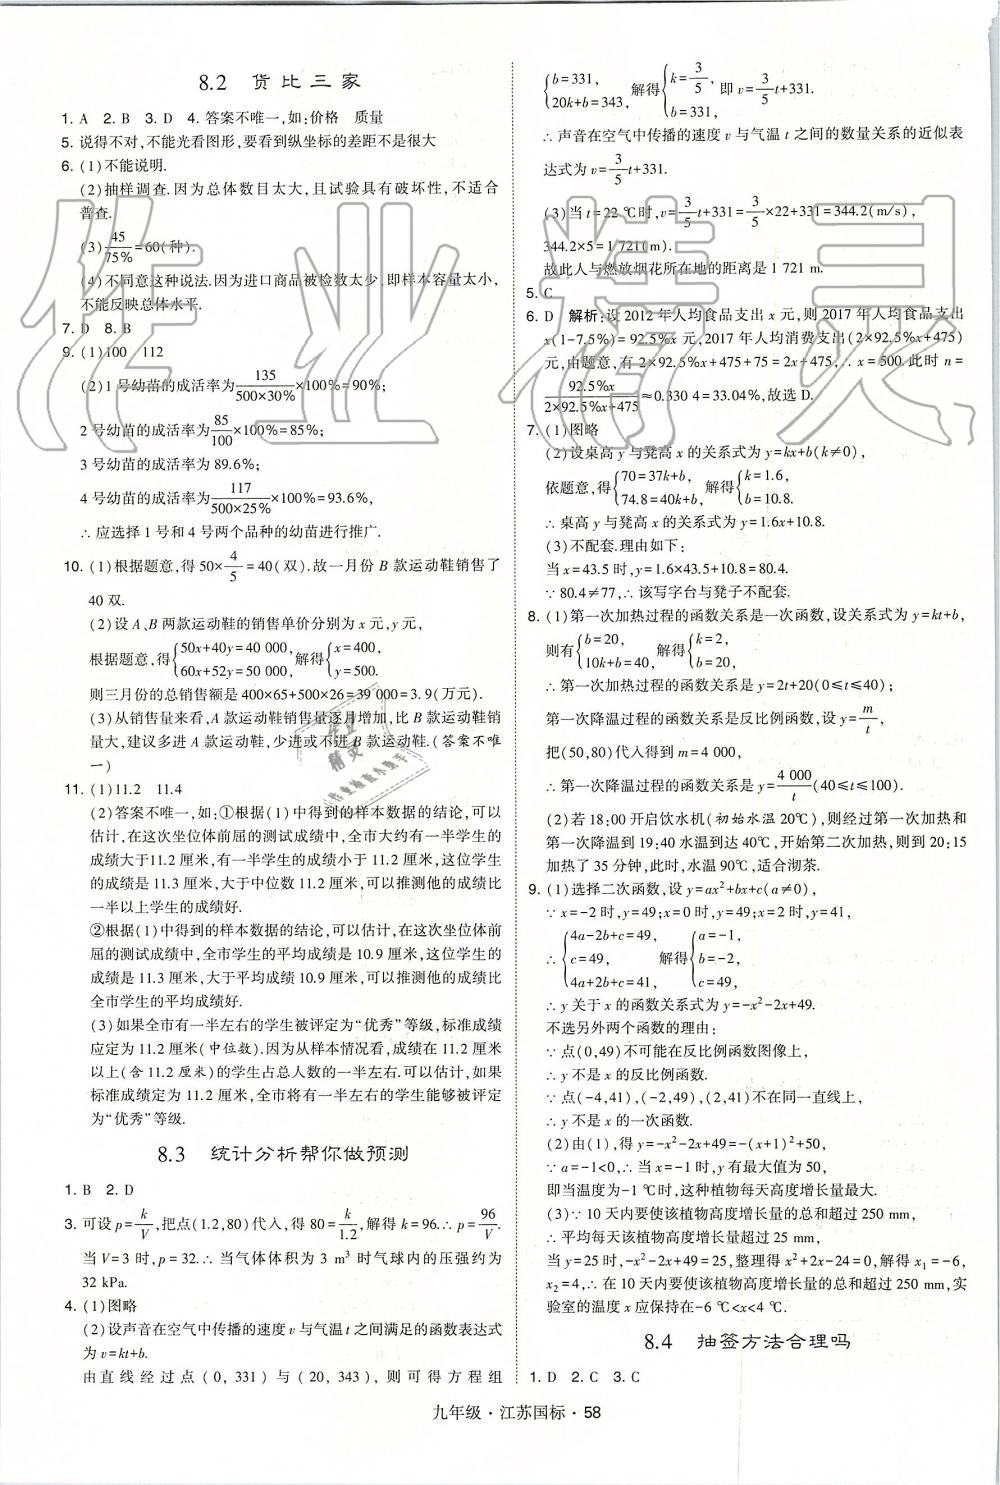 8.2 货比三家
1. A 2. B 3. D 4. 答案不唯一,如:价格 质量
5. 说得不对,不能光看图形,要看到纵坐标的差距不是很大
6. (1)不能说明.
(2)抽样调查.因为总体数目太大,且试验具有破坏性,不适合
普查.
(3) 45/75% =60(种).
(4)不同意这种说法.因为进口商品被检数太少,即样本容量太小,
不能反映总体水平.
7. D 8. B
9. (1)100 112
(2)1号幼苗的成活率为 135/(500×30%) ×100%=90%;
2号幼苗的成活率为 85/100 ×100%=85%;
3号幼苗的成活率为 89.6%;
4号幼苗的成活率为 117/(500×25%) ×100%=93.6%,
∴应选择1号和4号两个品种的幼苗进行推广.
10. (1)根据题意,得50× 4/5 =40(双).故一月份B款运动鞋销售了
40双.
(2)设A、B两款运动鞋的销售单价分别为x元,y元,
根据题意,得{50x+40y=40 000, 60x+52y=50 000, 解得{x=400, y=500.
则三月份的总销售额是400×65+500×26=39 000=3.9(万元).
(3)从销售量来看,A款运动鞋销售量逐月增加,比B款运动鞋销
量大,建议多进A款运动鞋,少进或不进B款运动鞋.(答案不唯
一)
11. (1)11.2 11.4
(2)答案不唯一,如:①根据(1)中得到的样本数据的结论,可以
估计,在这次坐位体前屈的测试成绩中,全市大约有一半学生的
成绩大于11.2厘米,有一半学生的成绩小于11.2厘米,这位学生
的成绩是11.3厘米,大于中位数11.2厘米,可以推测他的成绩比
一半以上学生的成绩好.
②根据(1)中得到的样本数据的结论,可以估计,在这次坐位体前
屈的测试成绩中,全市学生的平均成绩是10.9厘米,这位学生的
成绩是11.3厘米,大于平均成绩10.9厘米,可以推测他的成绩比
全市学生的平均成绩好.
(3)如果全市有一半左右的学生被评定为“优秀”等级,标准成绩
应定为11.2厘米(中位数).因为从样本情况看,成绩在11.2厘
米以上(含11.2厘米)的学生占总人数的一半左右.可以估计,如果
标准成绩定为11.2厘米,全市将有一半左右的学生能够被评定
为“优秀”等级.
8.3 统计分析帮你做预测
1. B 2. D
3. 可设p= k/V ,把点(1.2,80)代入,得80= k/1.2 ,解得k=96.∴p= 96/V .
当V=3时,p=32.∴当气体体积为3 m³时气球内的压强约为
32 kPa.
4. (1)图略
(2)设声音在空气中传播的速度v与气温t之间满足的函数表达式
为v=kt+b.
由直线经过点(0,331)与(20,343),则可得方程组
{b=331, 20k+b=343, 解得{k= 3/5 , b=331, 即v= 3/5 t+331.
∴声音在空气中传播的速度v与气温t之间的数量关系的近似表
达式为v= 3/5 t+331.
(3)当t=22 ℃时,v= 3/5 t+331= 3/5 ×22+331=344.2(m/s),
344.2×5=1 721(m).
故此人与燃放烟花所在地的距离是1 721 m.
5. C
6. D 解析:设2012年人均食品支出x元,则2017年人均食品支出
x(1-7.5%)=92.5%x元,2017年人均消费支出(2×92.5%x+475)
元,由题意,有2×92.5%x+475+75=2x+475,∴x=500.此时n=
92.5%x/(2×92.5%x+475) ≈0.330 4=33.04%,故选D.
7. (1)图略
(2)设桌高y与凳高x的关系式为y=kx+b(k≠0),
依题意,得{70=37k+b, 74.8=40k+b, 解得{k=1.6, b=10.8.
∴桌高y与凳高x的关系式为y=1.6x+10.8.
(3)不配套.理由如下:
当x=43.5时,y=1.6×43.5+10.8=80.4.
∵80.4≠77,∴该写字台与凳子不配套.
8. (1)第一次加热过程的函数关系是一次函数,设关系式为y=kt+b,
则有{b=20, 10k+b=40, 解得{k=2, b=20,
∴第一次加热过程的函数关系是y=2t+20(0≤t≤40);
第一次降温过程的函数关系是反比例函数,设y= m/t ,
把(50,80)代入得到m=4 000,
∴第一次降温过程的函数关系是y= 4 000/t (40≤t≤200).
(2)若18:00开启饮水机(初始水温20℃),则经过第一次加热和
第一次降温到19:40水温达到达40℃,开始第二次加热,则到20:15
加热了35分钟,此时,水温90℃,适合沏茶.
9. (1)选择二次函数,设y=ax²+bx+c(a≠0),
∵x=-2时,y=49;x=0时,y=49;x=2时,y=41,
∴{4a-2b+c=49, c=49, 4a+2b+c=41, 解得{a=-1, b=-2, c=49,
∴y关于x的函数关系式为y=-x²-2x+49.
不选另外两个函数的理由:
∵点(0,49)不可能在反比例函数图像上,
∴y不是x的反比例函数.
∵点(-4,41),(-2,49),(2,41)不在同一直线上,
∴y不是x的一次函数.
(2)由(1),得y=-x²-2x+49=-(x+1)²+50,
∵a=-1<0,∴当x=-1时,y有最大值为50,
即当温度为-1 ℃时,这种植物每天高度增长量最大.
(3)∵10天内要使该植物高度增长量的总和超过250 mm,
∴平均每天该植物高度增长量超过25 mm,
当y=25时,-x²-2x+49=25,整理得x²+2x-24=0,解得x₁=-6,
x₂=4,∴在10天内要使该植物高度增长量的总和超过250 mm,实
验室的温度x应保持在-6 ℃<x<4 ℃.
8.4 抽签方法合理吗
1. D 2. C 3. C
九年级·江苏国标·58
作业精灵